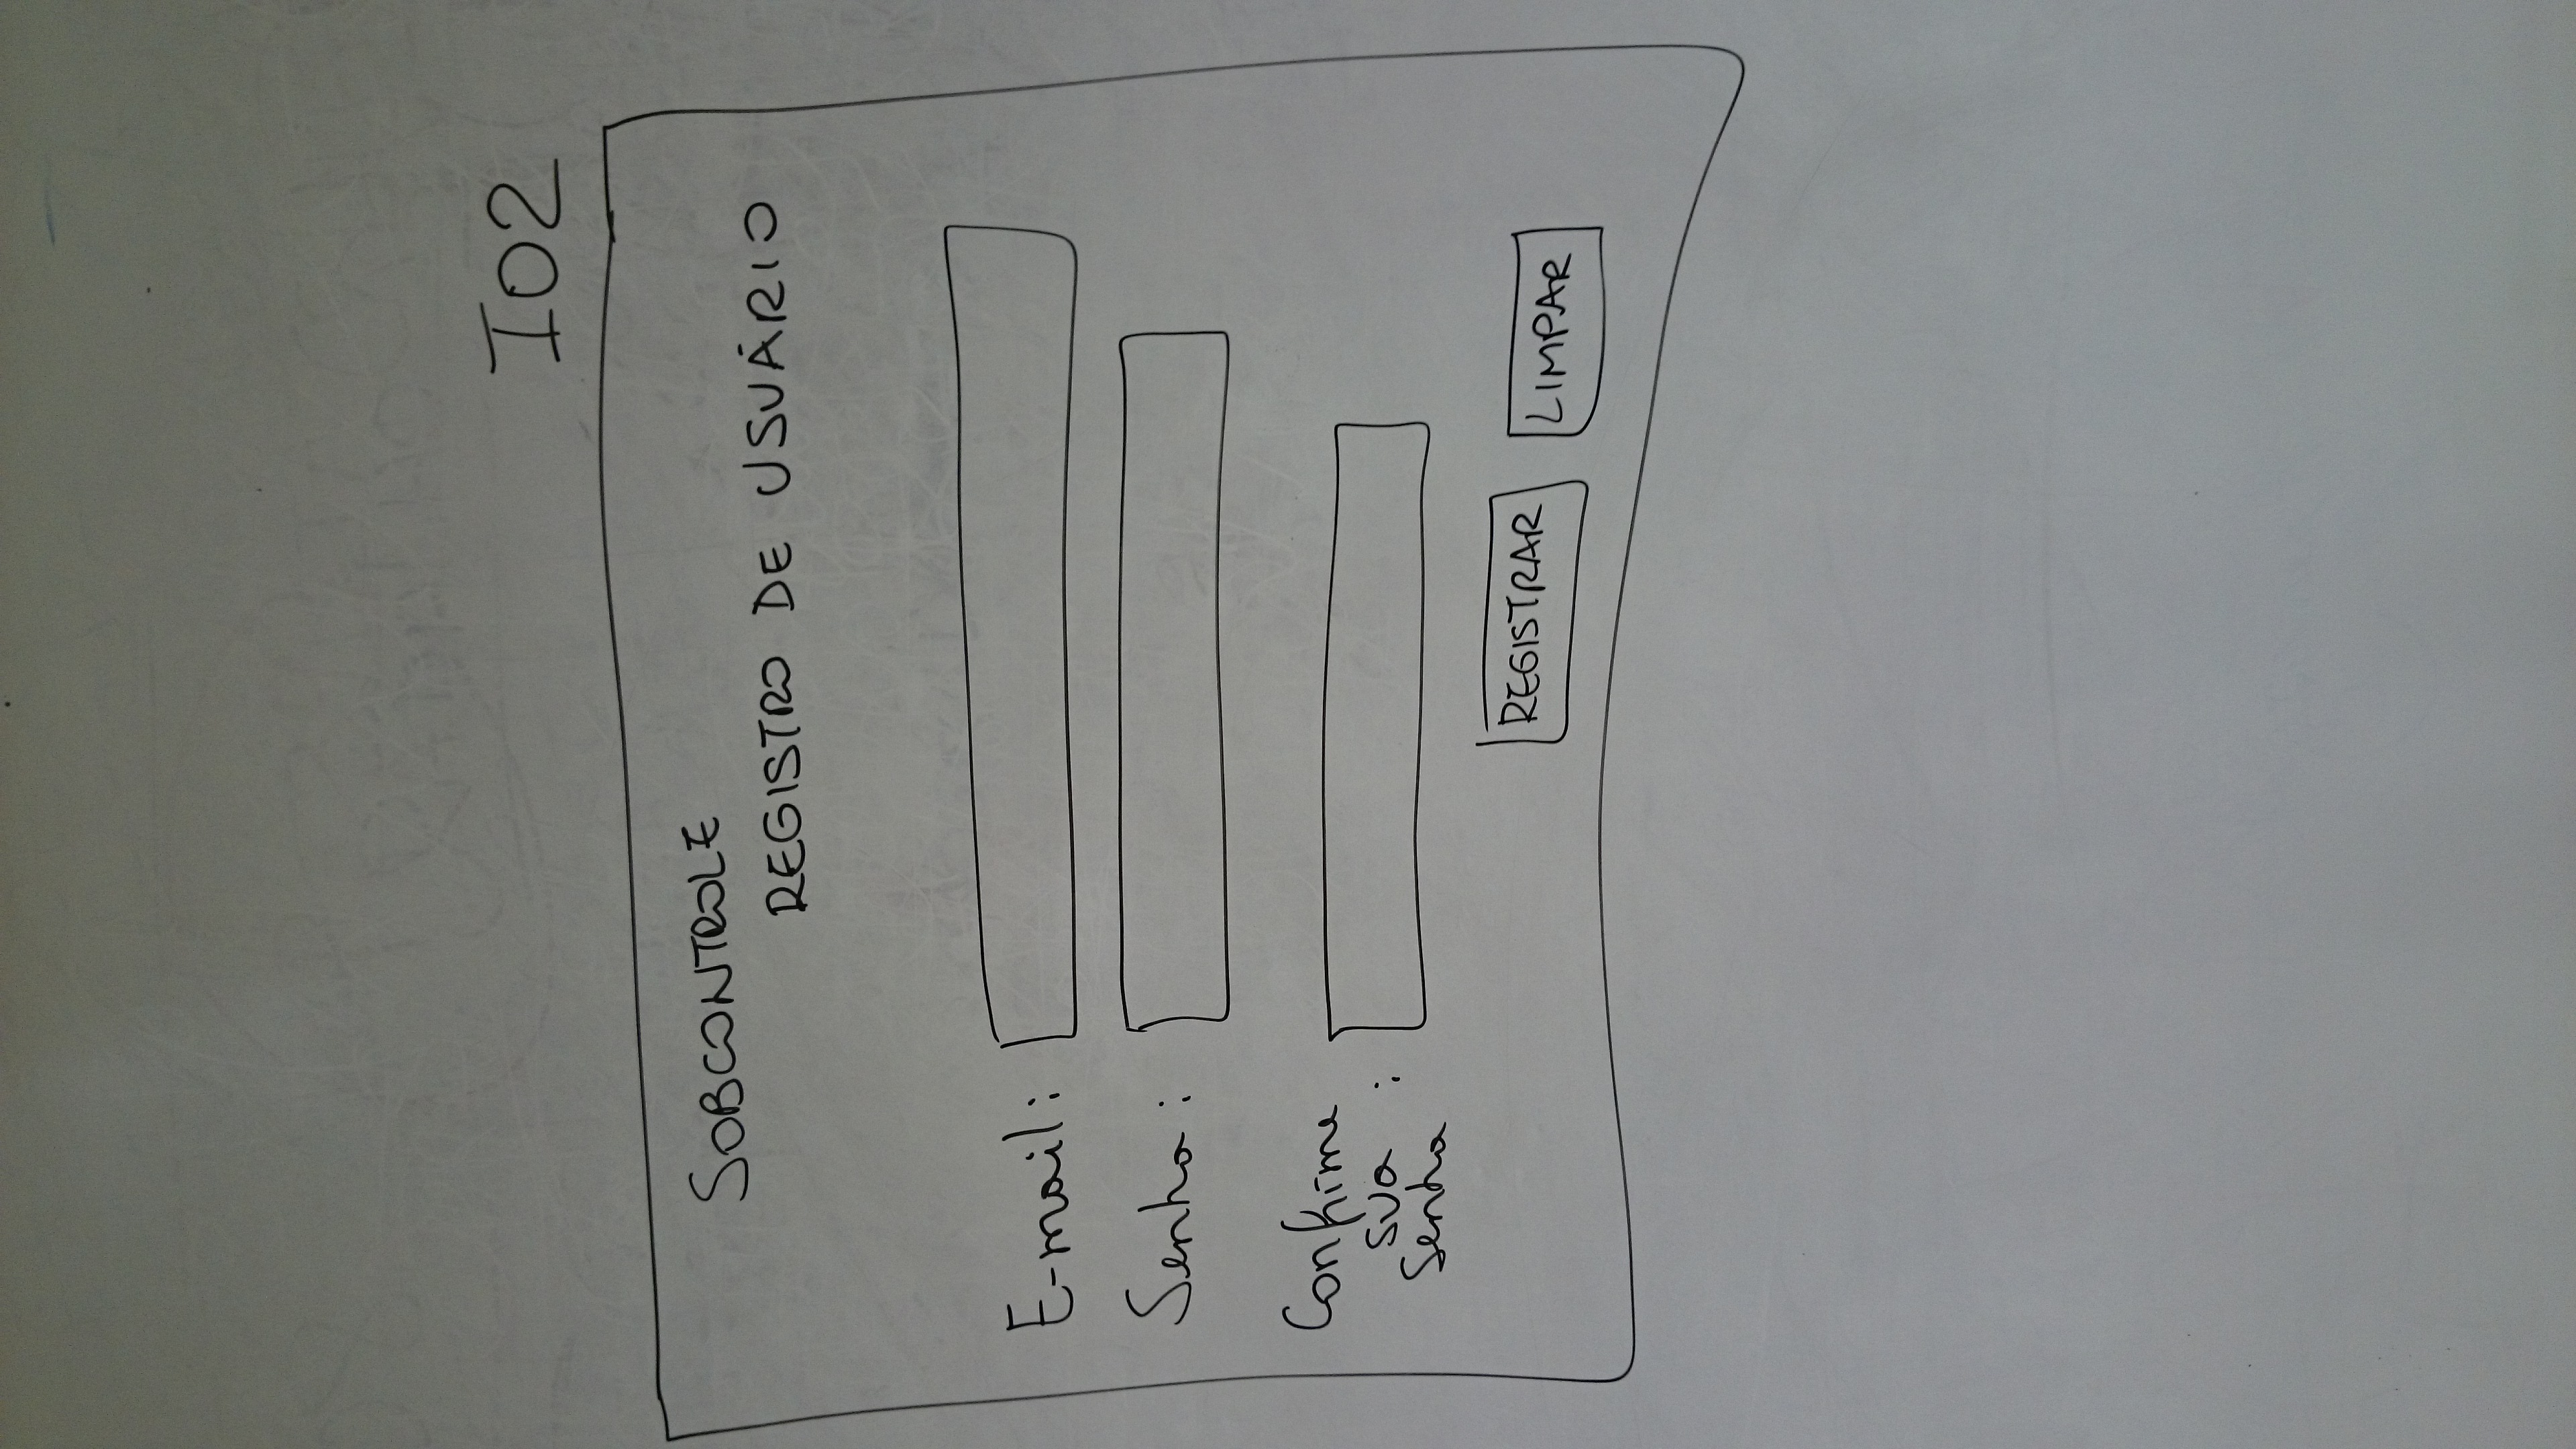 I02
SOBCONTROLE
REGISTRO DE USUÁRIO
E-mail:
Senha:
Confirme
sua :
Senha
REGISTRAR
LIMPAR